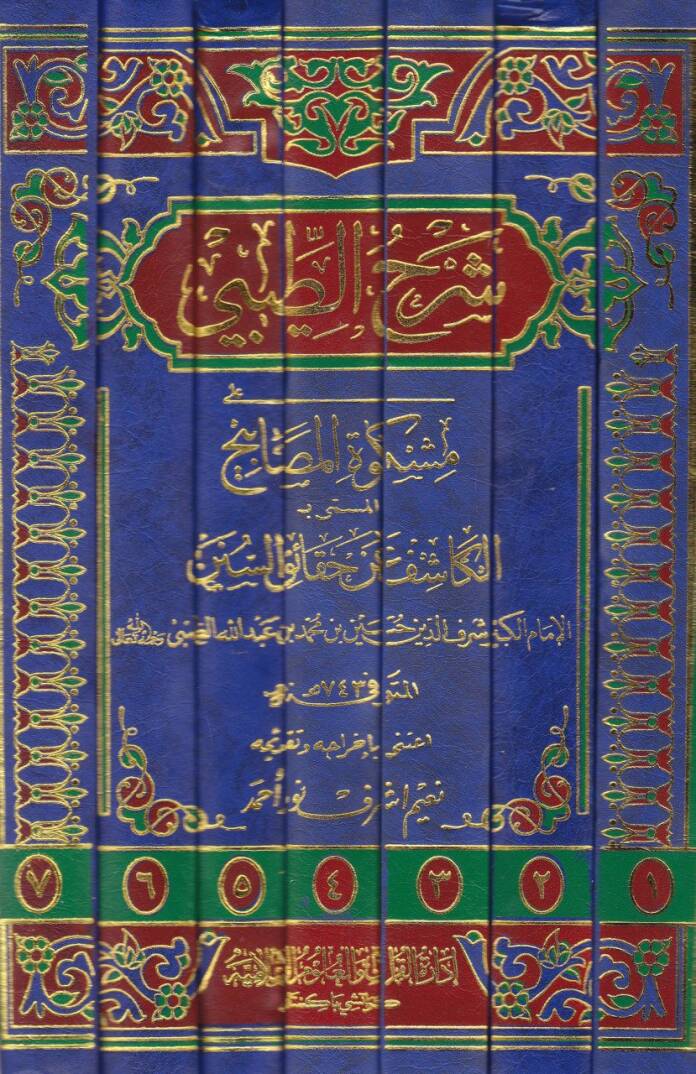 شَرْحُ الطِّيْبِي
على
مشكوة المصابيح
المسمى بـ
الكاشف عن حقائق السنن
الإمام الكبير شرف الدين حسين بن محمد بن عبد الله الطيبي رحمه الله تعالى
المتوفى ٧٤٣هـ
اعتنى بإخراجه وتقويمه
نعيم اشرف نور أحمد
١ ٢ ٣ ٤ ٥ ٦ ٧
إدارة القرآن والعلوم الإسلامية
كراتشي باكستان